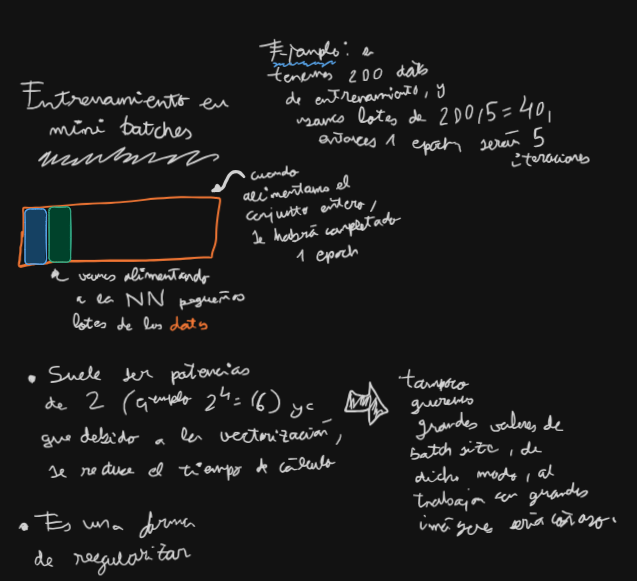 Entrenamiento en
mini batches
Ejemplo: si
tenemos 200 dats
de entrenamiento, y
usamos lotes de 200/5 = 40,
entonces 1 epoch serán 5
iteraciones
cuando
alimentamos el
conjunto entero,
se habrá completado
1 epoch
vamos alimentando
a la NN pequeños
lotes de los datos
• Suele ser potencias
de 2 (ejemplo 2⁴ = 16) ya
que debido a la vectorización,
se reduce el tiempo de cálculo
tampoco
queremos
grandes valores de
batch size, de
dicho modo, al
trabajar con grandes
imágenes sería
• Es una forma
de reegularitar